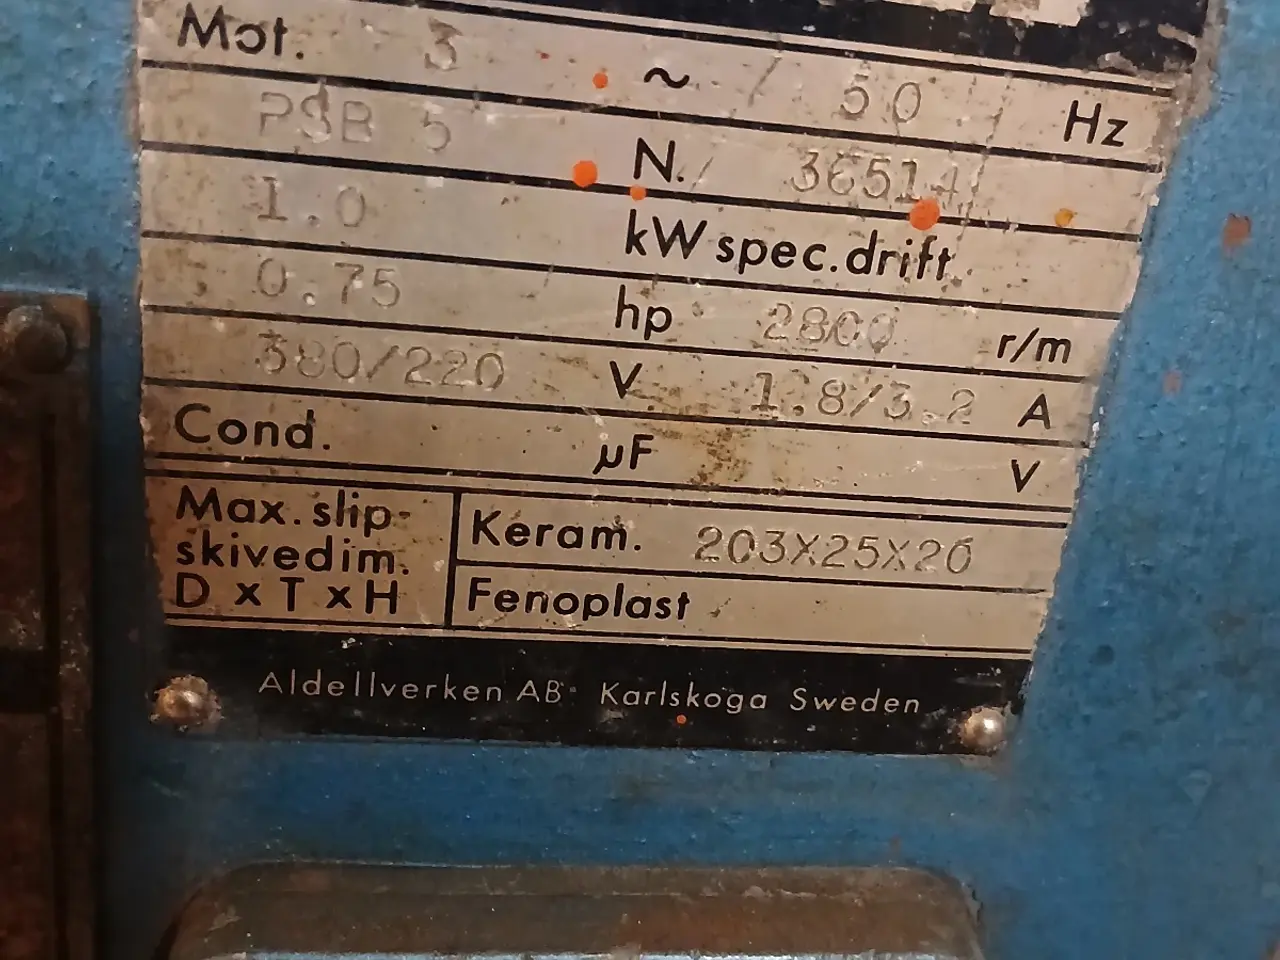 Mot. 3 ~ / 50 Hz
PSB 5 N. / 36514
1.0 kW spec.drift.
0.75 hp 2800 r/m
380/220 V. 1.8/3.2 A
Cond. µF V
Max. slip-
skivedim.
D x T x H
Keram. 203X25X20
Fenoplast
Aldellverken AB Karlskoga Sweden